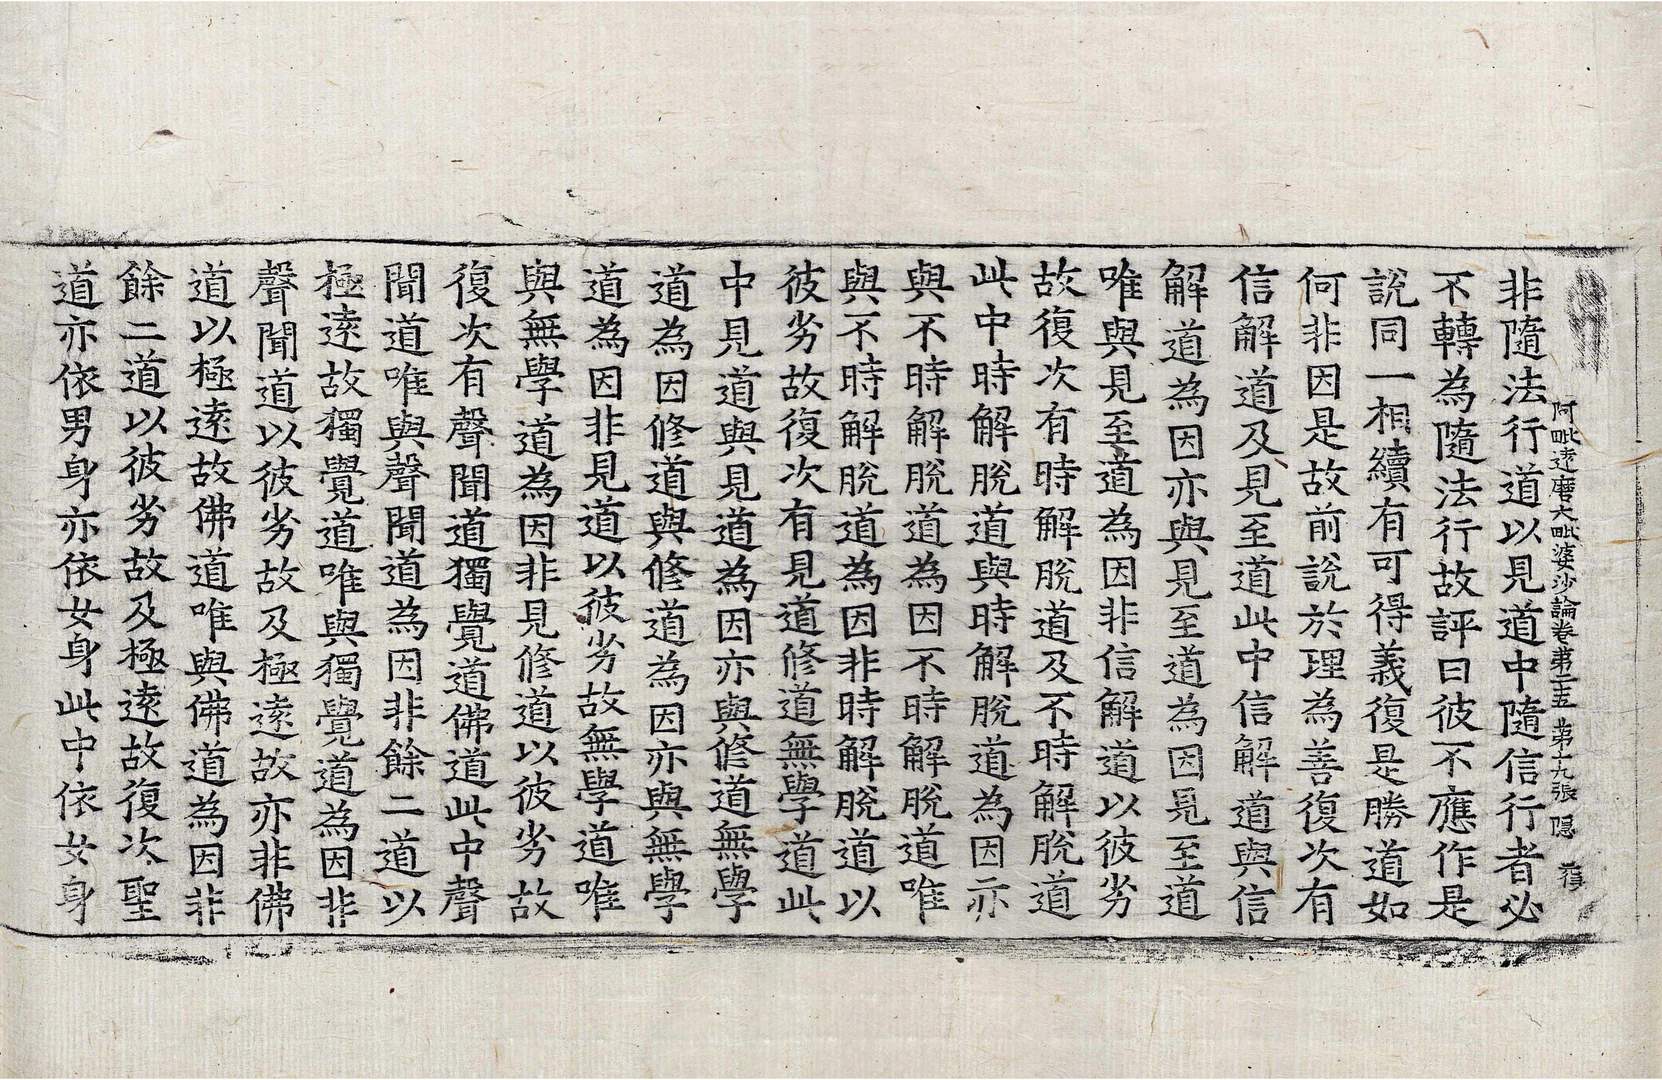 阿毗達磨大毗婆沙論卷第三五 第十九張 隱
非隨法行道以見道中隨信行者必
不轉為隨法行故評曰彼不應作是
說同一相續有可得義復是勝道如
何非因是故前說於理為善復次有
信解道及見至道此中信解道與信
解道為因亦與見至道為因見至道
唯與見至道為因非信解道以彼劣
故復次有時解脫道及不時解脫道
此中時解脫道與時解脫道為因亦
與不時解脫道為因不時解脫道唯
與不時解脫道為因非時解脫道以
彼劣故復次有見道修道無學道此
中見道與見道為因亦與修道無學
道為因修道與修道為因亦與無學
道為因非見道以彼劣故無學道唯
與無學道為因非見修道以彼劣故
復次有聲聞道獨覺道佛道此中聲
聞道唯與聲聞道為因非餘二道以
極遠故獨覺道唯與獨覺道為因非
聲聞道以彼劣故及極遠故亦非佛
道以極遠故佛道唯與佛道為因非
餘二道以彼劣故及極遠故復次聖
道亦依男身亦依女身此中依女身